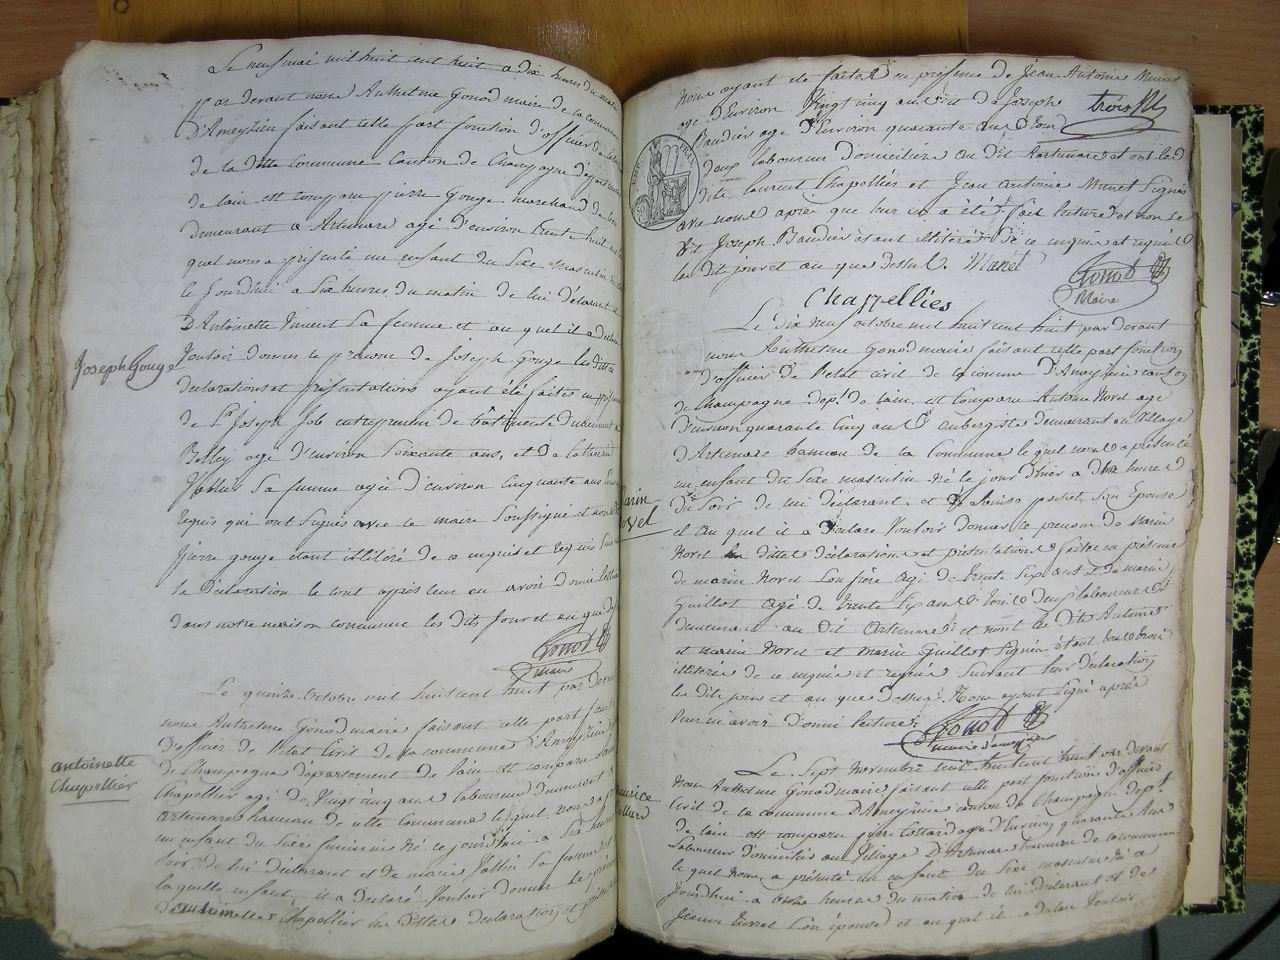 Le neuf mai mil huit cent huit a dix heures du matin
par devant nous Anthelme Gonod maire de la commune
D'Ameyzieu faisant cette part fonction d'officier de
de la ditte Commune Canton de Champagne département
de lain est comparu pierre Gouge marchand de
demeurant a Artemare agé d'environ trente huit
quel nous a présenté un enfant du Sexe masculin
le Jourdhui a Six heures du matin de lui déclarant et
D'Antoinette Vincent Sa femme et au quel il a déclaré
Vouloir donner le prenom de Joseph Gouge les dittes
declarations et présentations ayant été faites en présence
de Sr Joseph Job entrepreneur de bâtiments demeurant a
Belley agé d'environ Soixante ans, et de
Sa femme agée d'environ Cinquante ans
requis qui ont Signés avec le maire Soussigné et non
pierre gouge étant illitéré de ce enquis et requis
Sa Déclaration le tout après leur en avoir donné lecture
dans notre maison commune les dits Jour et an que
Gonod
maire
Joseph Gouge
Le quinze Octobre mil huit cent huit par devant
nous Anthelme Gonod maire faisant cette part
D'officier de l'état Civil de la commune D'Ameyzieu
de Champagne département de lain est comparu
Chapellier agé de Vingt cinq ans laboureur demeurant a
artemare hameau de cette Commune le quel nous a
un enfant du Sexe feminin né ce jourdhui a Six heures
Soir de lui déclarant et de marie Sa femme
la quelle enfant il a déclaré Vouloir donner le prenom
D'antoinette Chapellier les dittes declarations et
antoinette
Chapellier
nous ayant été faites en présence de Jean Antoine Munet
age d'environ Vingt cinq ans et de Joseph
Baudier age D'Environ quarante ans tous
deux laboureurs Domiciliés au dit Artemare et ont les
dits laurent Chapellier et Jean antoine Munet Signés
avec nous après que leur en a été fait lecture et non le
dit Joseph Baudier étant illitéré de ce enquis et requis
les dit jour et an que dessus. Munet
Gonod
Maire
Chappelliés
Le dix neuf octobre mil huit cent huit par devant
nous Anthelme Gonod maire faisant cette part fonction
d'officier de l'état civil de la comune D'Ameyzieu canton
de Champagne dept. de lain est comparu Antoine Novel age
d'environ quarante cinq ans aubergiste demeurant au Village
d'Artemare hameau de la Commune le quel nous a présenté
un enfant du Sexe masculin né le jour d'hier a dix heures
du Soir de lui déclarant et de Son Epouse
et au quel il a déclaré Vouloir donner le prenom de Marin
Novel les dittes déclaration et présentation faites en présence
de marin Novel Son frère agé de trente Sept ans et de marin
Guillot agé de trente Six ans tous deux laboureurs
demeurant au dit Artemare et nont les dits Antoine
et marin Novel et marin Guillot Signés étant tous trois
illitérés de ce enquis et requis Suivant leur déclaration
les dits jour et an que dessus. Nous ayant Signé après
leur en avoir donné lecture.
Gonod
maire d'ameyzieu
Marin
Novel
Le Sept Novembre mil huit cent huit par devant
Nous Anthelme Gonod maire faisant cette part fonction d'officier
Civil de la commune D'Ameyzieu canton de Champagne dept.
de lain est comparu pierre Collard age d'Environ quarante Ans
Laboureur domicilié au Village D'Artemare hameau de la commune
le quel Nous a présenté un enfant du Sexe masculin né a
Jourdhui a heures du matin de lui déclarant et de
Son épouse et au quel il a déclaré Vouloir